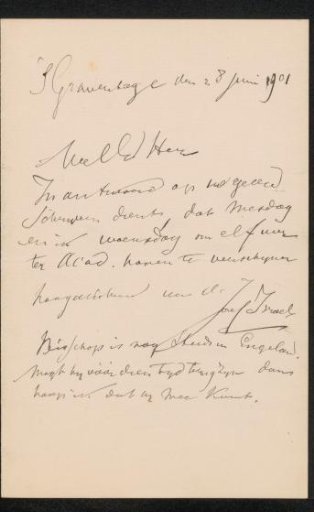 's Gravenhage den 28 Juni 1901
Herr
In antwoord op uw geeerd
schrijven dient, dat Mesdag
en ik woensdag om elf uur
ter Acad. te verschijnen
hoogachtend Jozef Israels
Bisschop is nog steeds in Engeland
mogt hij vóór dien tijd terug zijn dan
hoop ik dat hij mee komt.